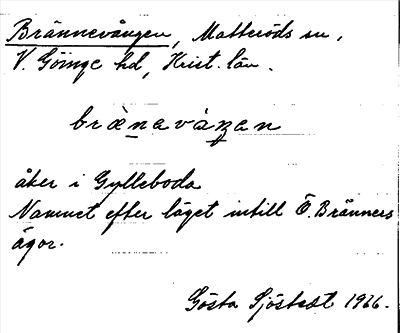 Brännevången, Matteröds sn,
V. Göinge hd, Krist. län.
bræ̀navàŋan
åker i Gylleboda
Namnet efter läget intill Ö. Bränners
ägor.
Gösta Sjöstedt 1926.